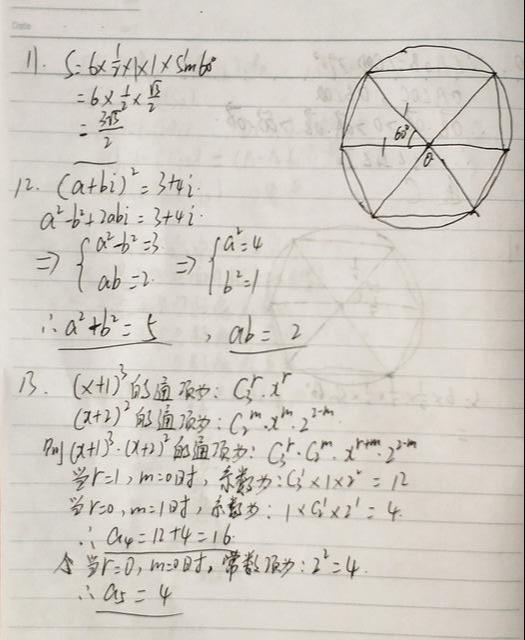 Date
11. S=6×1/2×1×1×sin60°
=6×1/2×√3/2
=3√3/2
1
60°
1
O
12. (a+bi)²=3+4i.
a²-b²+2abi=3+4i.
⇒{a²-b²=3 ab=2. ⇒{a²=4 b²=1
∴a²+b²=5, ab=2
13. (x+1)³的通项为: C₃ʳ·xʳ
(x+2)²的通项为: C₂ᵐ·xᵐ·2²⁻ᵐ
则(x+1)³·(x+2)²的通项为: C₃ʳ·C₂ᵐ·xʳ⁺ᵐ·2²⁻ᵐ
当r=1, m=0时, 系数为: C₃¹×1×2²=12
当r=0, m=1时, 系数为: 1×C₂¹×2¹=4.
∴a₄=12+4=16.
令当r=0, m=0时, 常数项为: 2²=4.
∴a₅=4